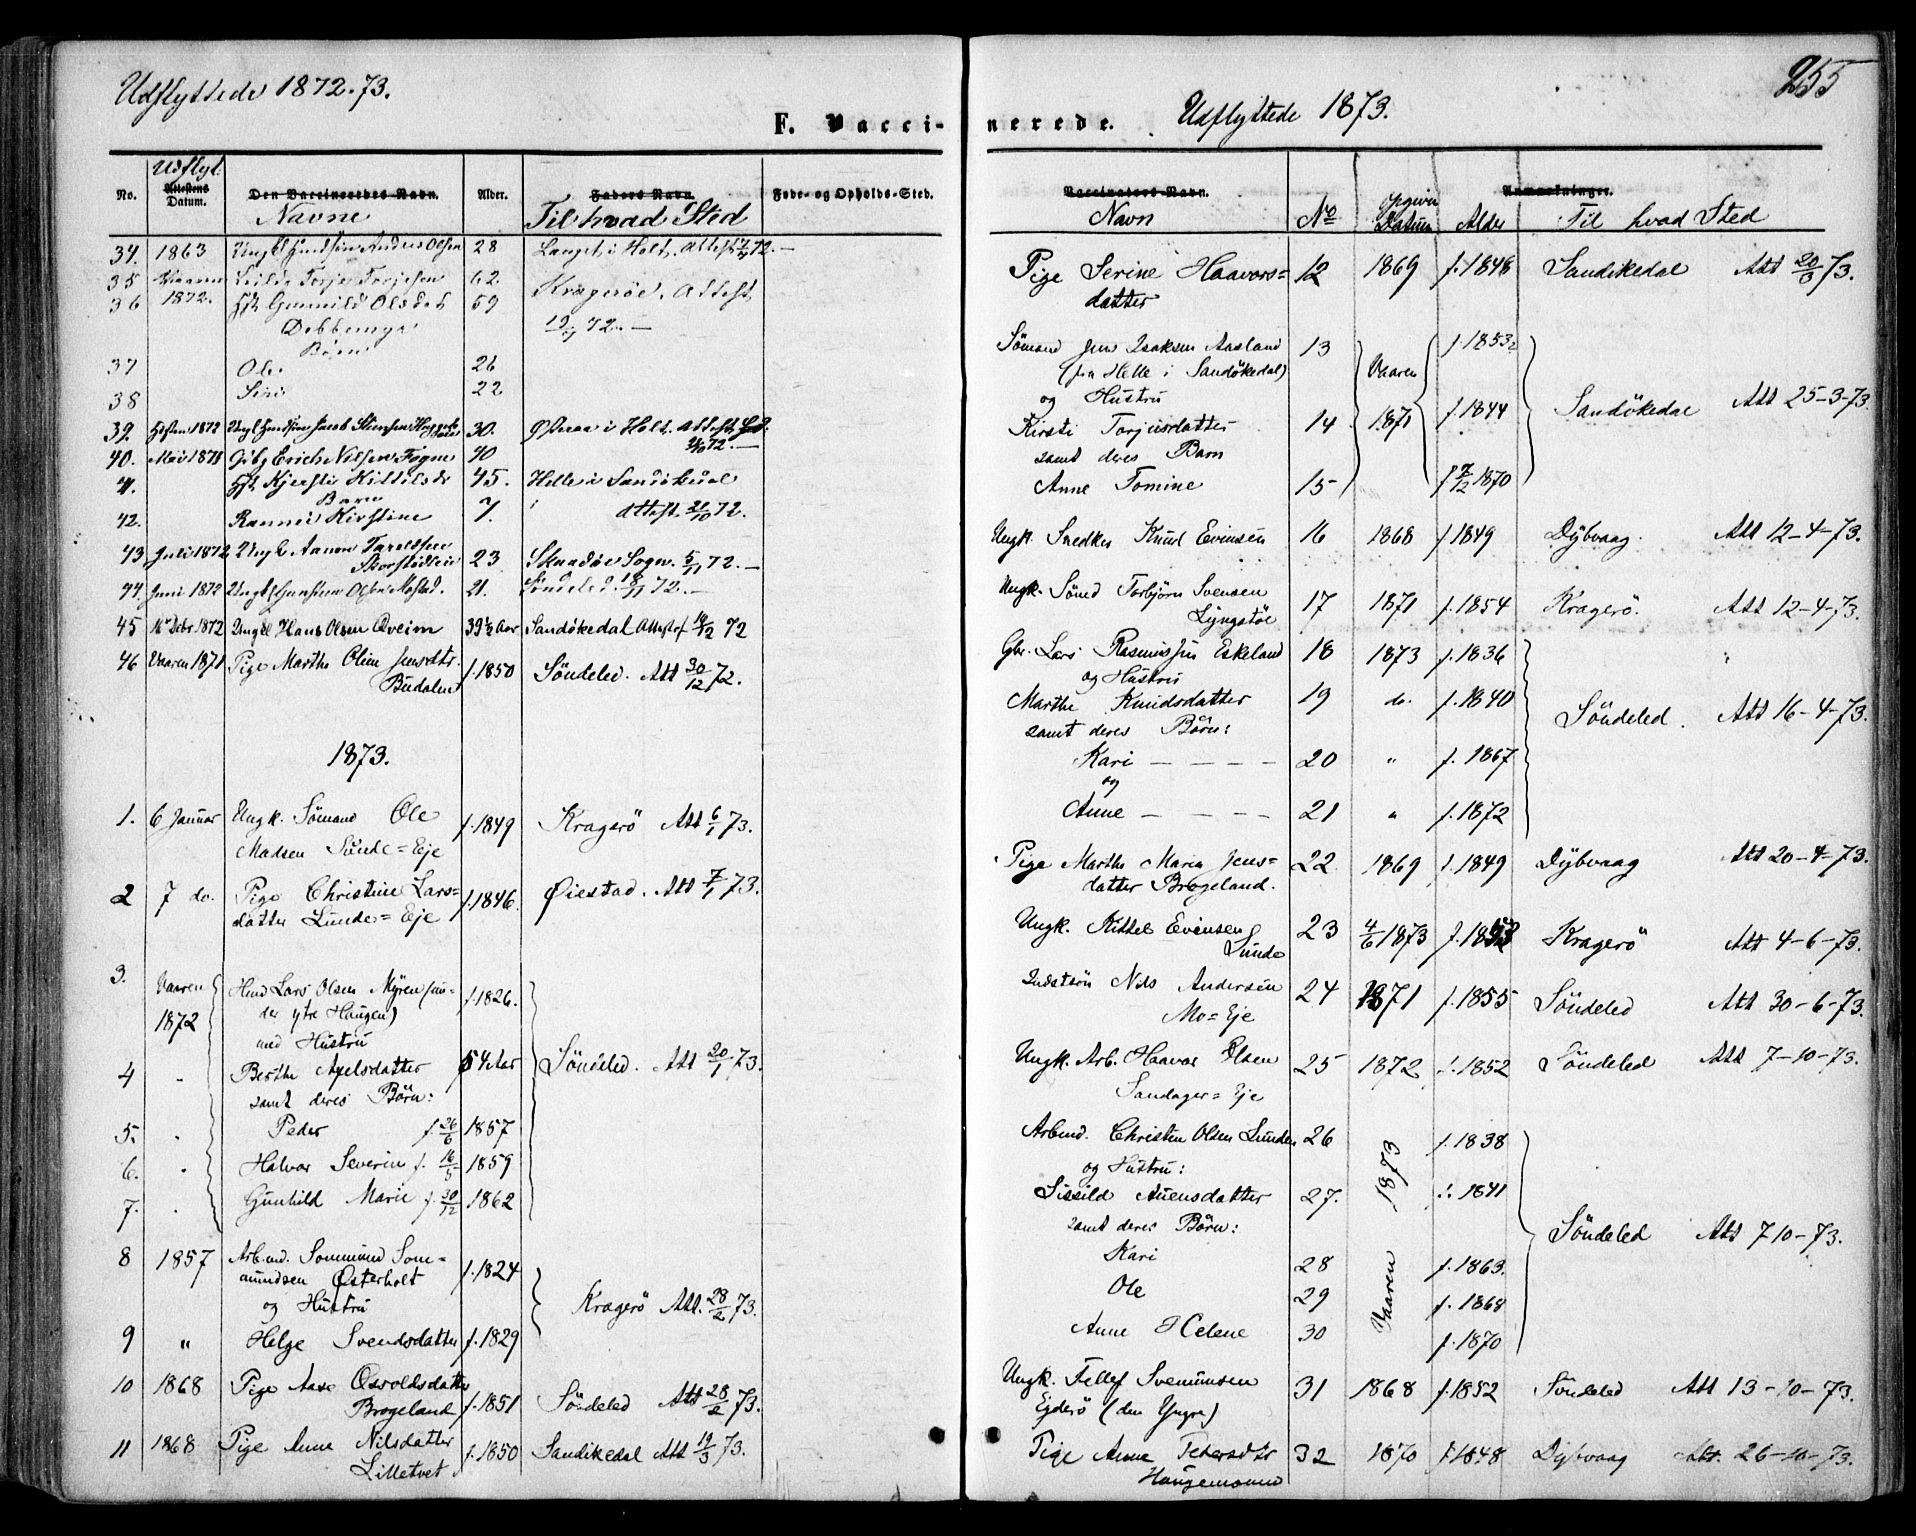 Udflyttede 1872-73.
F. Vacci-
No.
Udflyt.
Attestens
Datum.
Den Vaccineredes Navn.
Navne
Alder.
Faders Navn.
Til hvad Sted
Føde- og Opholds-Sted.
34. 1863 Anders Olsen 28 i Holt. Attest 72.—
35 Vaaren Torje Torjesen 62 Kragerøe. Attest
36 1872. Gunnild Olsdtr 59 72.—
Børn
37 Ole 26
38 Siri 22
39. Høsten 1872 Jacob 30. i Holt. Attest
72.—
40. Mai 1871 Erich Nilsen 40
41. Kjersti Kittilsdr 45. Helle i Sandøkedal
Barn
42. Kirstine 7. Attest. 21/10 72.
43 Juli 1872 Ungk Aanon 23 Sogn. 5/11 72.—
44. Juni 1872 Olsen 21. Søndeled. 18/11 72.—
45 16 Decbr 1872 Hans Olsen Qveim 39½ Aar Sandøkedal Attest 16/12 72
46 Vaaren 1871 Pige Marthe Oline Jensdtr. f. 1850 Söndeled. Att 30/12 72.
1873.
1. 6 Januar Ungk. Sömand Ole f. 1849 Kragerö Att 6/1 73.
Madsen Sunde=Eje
2 7 do. Pige Christine Lars= f. 1846. Øiestad. Att 7/1 73.
datter Lunde=Eje
3. Vaaren Lars Olsen Myren f. 1826.
1872 ytre Haugen)
med Hustru
4 " Berthe Axelsdatter 54 Aar Söndeled. Att 20/1 73.
samt deres Börn:
5. " Peder f. 26/6 1857
6. " Halvor Severin f. 16/5 1859
7. " Gunhild Marie f. 30/12 1862
8 1857 Arbmd. Sommund Som= f. 1824
mundsen Østerholt
og Hustru Kragerö Att. 28/2 73.
9 " Helge Svendsdatter f. 1829
10 1868 Pige Aase Osvoldsdatter f. 1851 Söndeled Att 28/2 73.
Brogeland
11 1868 Pige Anne Nilsdatter f. 1850 Sandikedal Att 19/3 73.
Lilletvet
255
nerede. Udflyttede 1873.
Vaccinators Navn.
Anmærkninger.
Navn No Opgiven Datum Alder Til hvad Sted
Pige Serine Haavors= 12 1869 f. 1848 Sandikedal Att 20/3 73.
datter
Sömand Jens Isaksen Aasland 13 f. 1853
(fra Helle i Sandökedal) Vaaren
og Hustru Sandökedal Att 25-3-73.
Kirsti Torjusdatter 14 1871 f. 1844
samt deres Barn
Anne Tomine 15 f 7/12 1870
Ungk. Snedker Knud Evensen 16 1868 f. 1849 Dybvaag. Att 12-4-73.
Ungk. Sömd Torbjörn Svensen 17 1871 f. 1854 Kragerö. Att 12-4-73.
Lyngstöl
Gbr. Lars Rasmussen Eskeland 18 1873 f. 1836
og Hustru
Marthe Knudsdatter 19 do. f. 1840 Söndeled. Att 16-4-73.
samt deres Börn:
Kari — — — — 20 " f. 1867
og
Anne — — — — 21 " f. 1872
Pige Marthe Maria Jens= 22 1869 f. 1849 Dybvaag Att 20-4-73.
datter Brogeland.
Ungk. Kittel Evensen 23 4/6 1873 Kragerö Att 4-6-73.
Lunde
Nils Andersen 24 1871 f. 1855 Söndeled Att 30-6-73.
Mo=Eje
Ungk. Arb. Haavor Olsen 25 1872 f. 1852 Söndeled Att 7-10-73.
Sandager=Eje
Arbmd. Christen Olsen Lunden 26 f. 1838
og Hustru:
Sissild Auensdatter 27. f. 1841
samt deres Börn: Vaaren 1873 Söndeled Att 7-10-73.
Kari 28 f. 1863.
Ole 29 f. 1868
Anne Helene 30 f. 1870
Ungk. Tellef Svenunsen 31 1868 f. 1852 Söndeled Att 13-10-73.
Egderö (den Yngre)
Pige Anne Petersdtr 32 1870 f. 1848 Dybvaag Att. 26-10-73.
Haugemoen